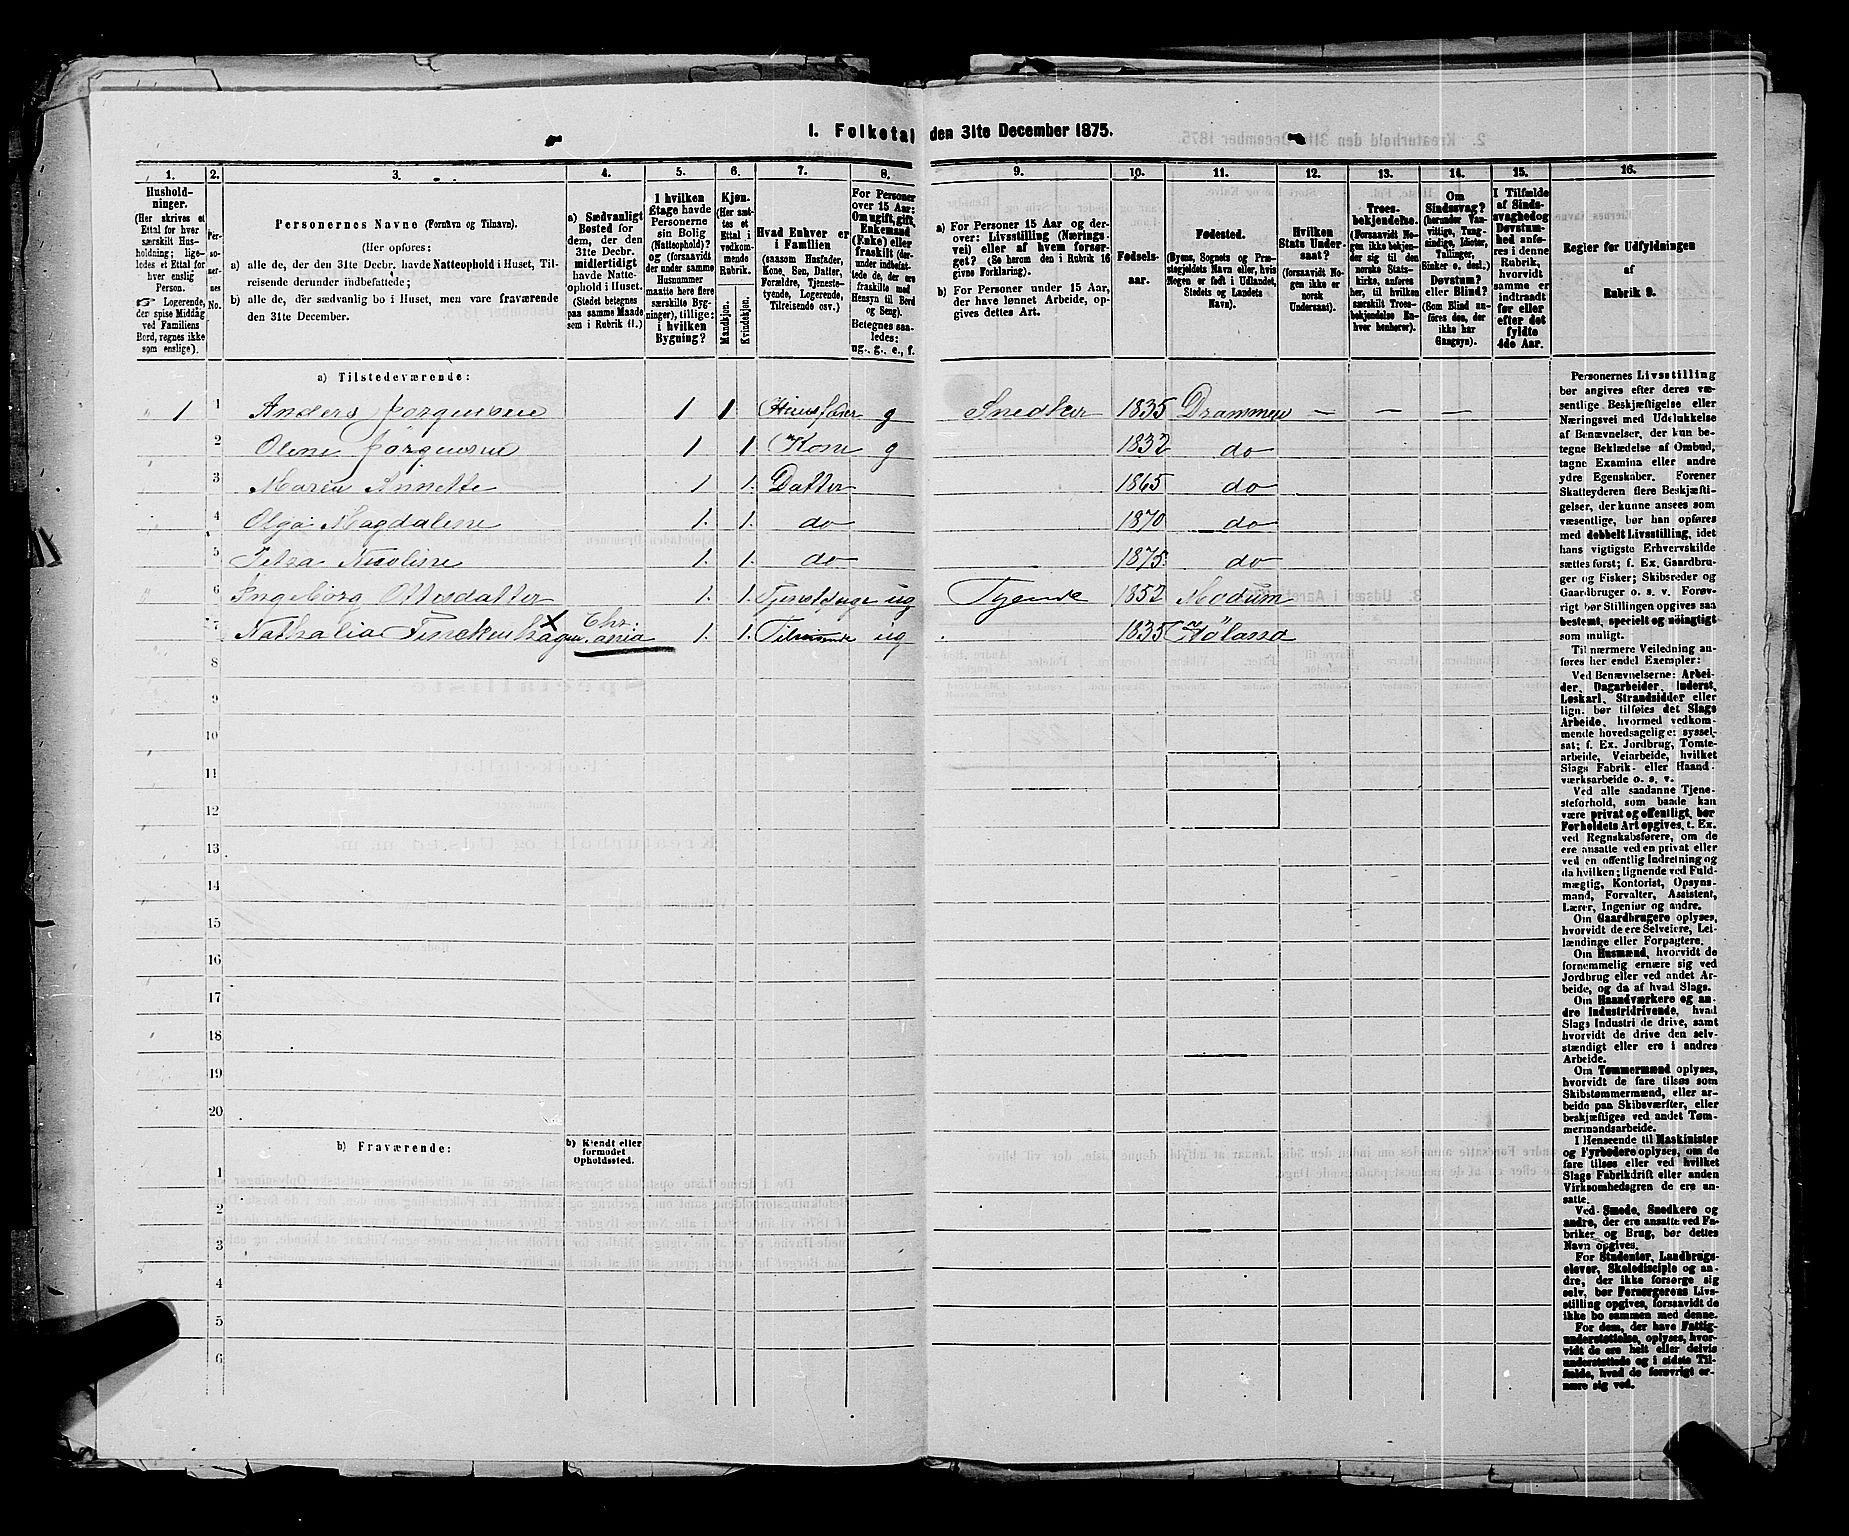 1. Folketal den 31te December 1875.
1.
2.
3.
4.
5.
6.
7.
8.
9.
10.
11.
12.
13.
14.
15.
16.
Hushold-
ninger.
(Her skrives et
Ettal for hver
særskilt Hus-
holdning; lige-
ledes et Ettal for
hver enslig
Person.
☞ Logerende,
der spise Middag
ved Familiens
Bord, regnes ikke
som enslige).
Per-
so-
ner-
nes
No.
Personernes Navne (Fornavn og Tilnavn).
(Her opføres:
a) alle de, der den 31te Decbr. havde Natteophold i Huset, Til-
reisende derunder indbefattede;
b) alle de, der sædvanlig bo i Huset, men vare fraværende
den 31te December.
a) Sædvanligt
Bosted for
dem, der den
31te Decbr.
midlertidigt
havde Natte-
ophold i Huset.
(Stedet betegnes
paa samme Maade
som i Rubrik 11.)
I hvilken
Etage havde
Personerne
sin Bolig
(Natteophold)?
og (forsaavidt
der under samme
Husnummer
maatte høre flere
særskilte Byg-
ninger), tillige:
i hvilken
Bygning?
Kjøn.
(Her sæt-
tes et
Ettal i
vedkom-
mende
Rubrik.
Mandkjøn.
Kvindekjøn.
Hvad Enhver er
i Familien
(saasom Husfader,
Kone, Søn, Datter,
Forældre, Tjeneste-
tyende, Logerende,
Tilreisende osv.)
For Personer
over 15 Aar:
Om ugift, gift,
Enkemand
(Enke) eller
fraskilt (der-
under indbefat-
tede de, der ere
fraskilte med
Hensyn til Bord
og Seng).
Betegnes saa-
ledes:
ug., g., e., f.
a) For Personer 15 Aar og der-
over: Livsstilling (Nærings-
vei) eller af hvem forsør-
get? (Se herom den i Rubrik 16
givne Forklaring).
b) For Personer under 15 Aar,
der have lønnet Arbeide, op-
gives dettes Art.
Fødsels-
aar.
Fødested.
(Byens, Sognets og Præ-
stegjeldets Navn eller, hvis
Nogen er født i Udlandet,
Stedets og Landets
Navn).
Hvilken
Stats Under-
saat?
(forsaavidt No-
gen ikke er
norsk
Undersaat).
Troes-
bekjendelse.
(Forsaavidt No-
gen ikke bekjen-
der sig til den
norske Stats-
kirke, anføres
her, til hvilken
særskilt Troes-
bekjendelse En-
hver henhører).
Om
Sindssvag?
(herunder Van-
vittige, Tung-
sindige, Idioter,
Tullinger,
Sinker o. desl.)
Døvstum?
eller Blind?
(Som Blind an-
føres den, der
ikke har
Gangsyn).
I Tilfælde
af Sinds-
svaghed og
Døvstum-
hed anfø-
res i denne
Rubrik,
hvorvidt
samme er
indtraadt
før eller
efter det
fyldte
4de Aar.
Regler for Udfyldningen
af
Rubrik 9.
a) Tilstedeværende:
1 1 Anders Jørgensen 1 1 Huusfader g Snedker 1835 Drammen — — —
2 Oline Jørgensen 1 1 Kone g 1832 do
3 Maren Annette 1 1. Datter 1865 do
4 Olga Magdalene 1. 1. do 1870 do
5 Petra Nicoline 1. 1. do 1875. do
6 Ingeborg Ottesdatter 1. 1. Tjenestpige ug Tyende 1852 Modum
7 Nathalia Finckenhagen Chr:ania 1. 1. ug 1835 Hølasså
8
9
10
11
12
13
14
15
16
17
18
19
20
b) Fraværende:
b) Kjendt eller
formodet
Opholdssted.
1
2
3
4
5
6
Personernes Livsstilling
bør angives efter deres væ-
sentlige Beskjæftigelse eller
Næringsvei med Udelukkelse
af Benævnelser, der kun be-
tegne Beklædelse af Ombud,
tagne Examina eller andre
ydre Egenskaber. Forener
Skatteyderen flere Beskjæfti-
gelser, der kunne ansees som
væsentlige, bør han opføres
med dobbelt Livsstilling, idet
hans vigtigste Erhvervskilde
sættes først; f. Ex. Gaardbru-
ger og Fisker; Skibsreder og
Gaardbruger o. s. v. Forøv-
rigt bør Stillingen opgives saa
bestemt, specielt og nöiagtigt
som muligt.
Til nærmere Veiledning an-
føres her endel Exempler:
Ved Benævnelserne: Arbei-
der, Dagarbeider, Inderst,
Løskarl, Strandsidder eller
lign. bør tilføies det Slags
Arbeide, hvormed vedkom-
mende hovedsagelig er syssel-
sat; f. Ex. Jordbrug, Tomte-
arbeide, Veiarbeide, hvilket
Slags Fabrik- eller Haand-
værksarbeide o. s. v.
Ved alle saadanne Tjene-
steforhold, som baade kan
være privat og offentligt, bør
Forholdets Art opgives, t. Ex.
ved Regnskabsførere, om de
ere ansatte ved en privat eller
ved en offentlig Indretning og
da hvilken; lignende ved Fuld-
mægtig, Kontorist, Opsyns-
mand, Forvalter, Assistent,
Lærer, Ingeniør og andre.
Om Gaardbrugere oplyses,
hvorvidt de ere Selveiere, Lei-
lændinge eller Forpagtere.
Om Husmænd, hvorvidt de
fornemmelig ernære sig ved
Jordbrug eller ved andet Ar-
beide, og da af hvad Slags.
Om Haandværkere og an-
dre Industridrivende, hvad
Slags Industri de drive, samt
hvorvidt de drive den selv-
stændigt eller ere i andres
Arbeide.
Om Tømmermænd oplyses,
hvorvidt de fare tilsøs som
Skibstømmermænd, eller ar-
beide paa Skibsværfter, eller
beskjæftiges ved andet Tøm-
mermandsarbeide.
I Henseende til Maskinister
og Fyrbødere oplyses, om de
fare tilsøs eller ved hvilket
Slags Fabrikdrift eller anden
Virksomhedsgren de ere an-
satte.
Ved Smede, Snedkere og
andre, der ere ansatte ved Fa-
briker og Brug, bør dettes
Navn opgives.
For Studenter, Landbrugs-
elever, Skoledisciple og an-
dre, der ikke forsørge sig
selv, bør Forsørgerens Livs-
stilling opgives, forsaavidt de
ikke bo sammen med denne.
For dem, der have Fattig-
understøttelse, oplyses, hvor-
vidt de ere helt eller delvis
understøttede og i sidste Til-
fælde, hvad de forøvrigt er-
nære sig ved.